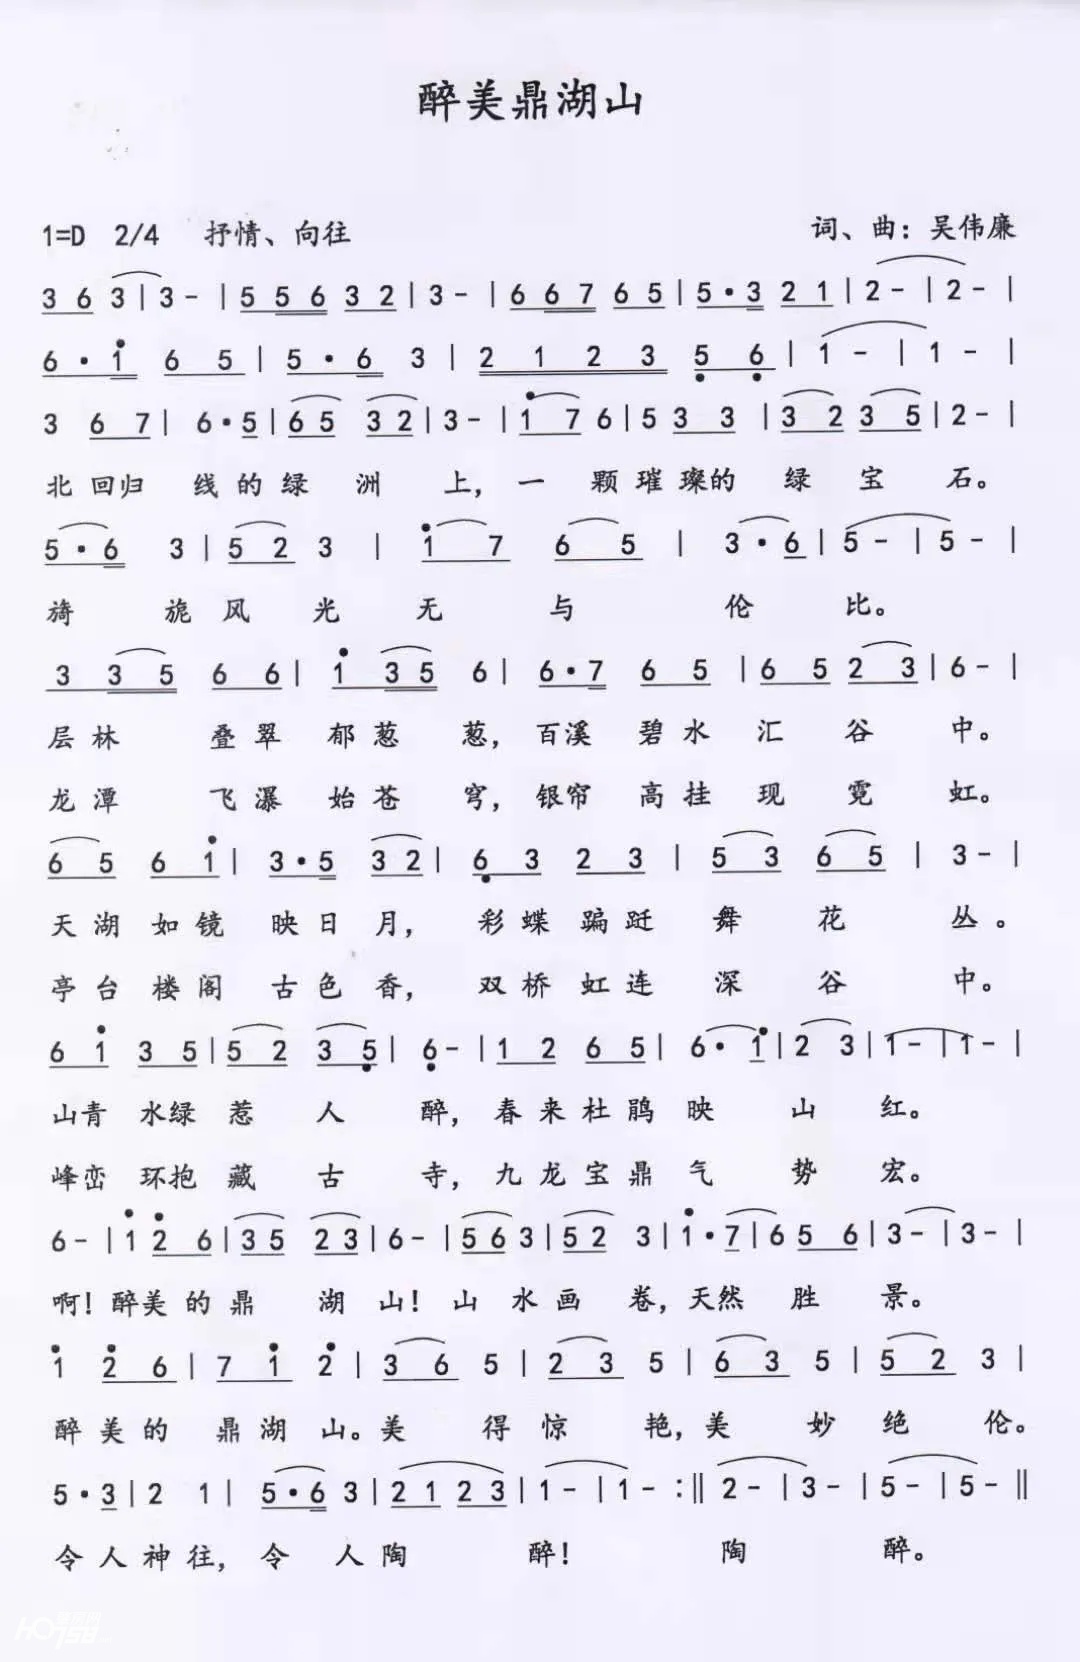 醉美鼎湖山
1=D 2/4 抒情、向往 词、曲：吴伟廉
3 6 3 | 3 - | 5 5 6 3 2 | 3 - | 6 6 7 6 5 | 5 · 3 2 1 | 2 - | 2 - |
6 · 1 6 5 | 5 · 6 3 | 2 1 2 3 5 6 | 1 - | 1 - |
3 6 7 | 6 · 5 | 6 5 3 2 | 3 - | 1 7 6 | 5 3 3 | 3 2 3 5 | 2 - |
北回归 线的绿 洲 上，一 颗璀璨的 绿 宝 石。
5 · 6 3 | 5 2 3 | 1 7 6 5 | 3 · 6 | 5 - | 5 - |
旖 旎 风 光 无 与 伦 比。
3 3 5 6 6 | 1 3 5 6 | 6 · 7 6 5 | 6 5 2 3 | 6 - |
层林 叠翠 郁葱 葱，百溪 碧水 汇 谷 中。
龙潭 飞瀑 始苍 穹，银帘 高挂 现 霓 虹。
6 5 6 1 | 3 · 5 3 2 | 6 3 2 3 | 5 3 6 5 | 3 - |
天湖 如镜 映日 月，彩蝶 蹁跹 舞 花 丛。
亭台 楼阁 古色 香，双桥 虹连 深 谷 中。
6 1 3 5 | 5 2 3 5 | 6 - | 1 2 6 5 | 6 · 1 | 2 3 | 1 - | 1 - |
山青 水绿 惹 人 醉，春来杜鹃 映 山 红。
峰峦 环抱 藏 古 寺，九龙宝鼎 气 势 宏。
6 - | 1 2 6 | 3 5 2 3 | 6 - | 5 6 3 | 5 2 3 | 1 · 7 | 6 5 6 | 3 - | 3 - |
啊！醉美的鼎 湖 山！山 水画 卷，天然 胜 景。
1 2 6 | 7 1 2 | 3 6 5 | 2 3 5 | 6 3 5 | 5 2 3 |
醉 美的 鼎湖 山。美 得 惊 艳，美 妙 绝 伦。
5 · 3 | 2 1 | 5 · 6 3 | 2 1 2 3 | 1 - | 1 - :‖ 2 - | 3 - | 5 - | 5 - ‖
令人神往，令 人陶 醉！ 陶 醉。